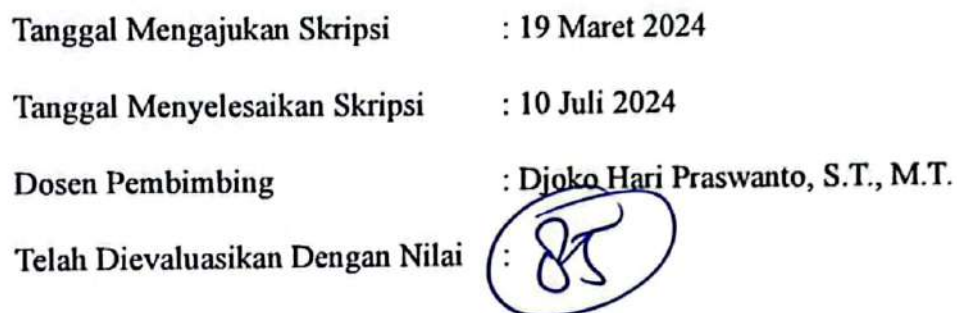 Tanggal Mengajukan Skripsi : 19 Maret 2024
Tanggal Menyelesaikan Skripsi : 10 Juli 2024
Dosen Pembimbing : Djoko Hari Praswanto, S.T., M.T.
Telah Dievaluasikan Dengan Nilai : 85